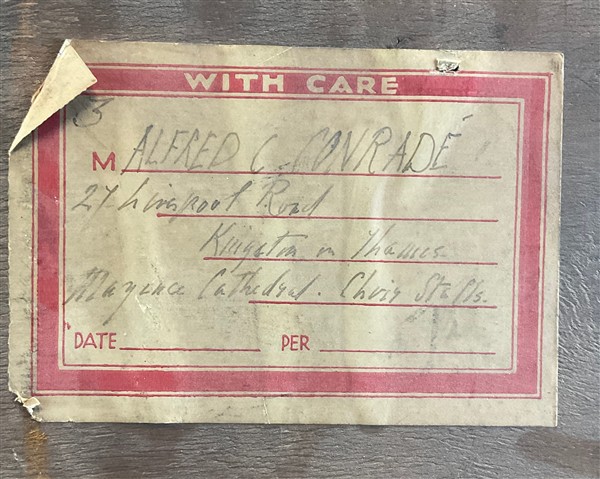 WITH CARE
3
M ALFRED C. CONRADÉ
27 Liverpool Road
Kingston on Thames
Mayence Cathedral. Choir Stalls.
DATE PER